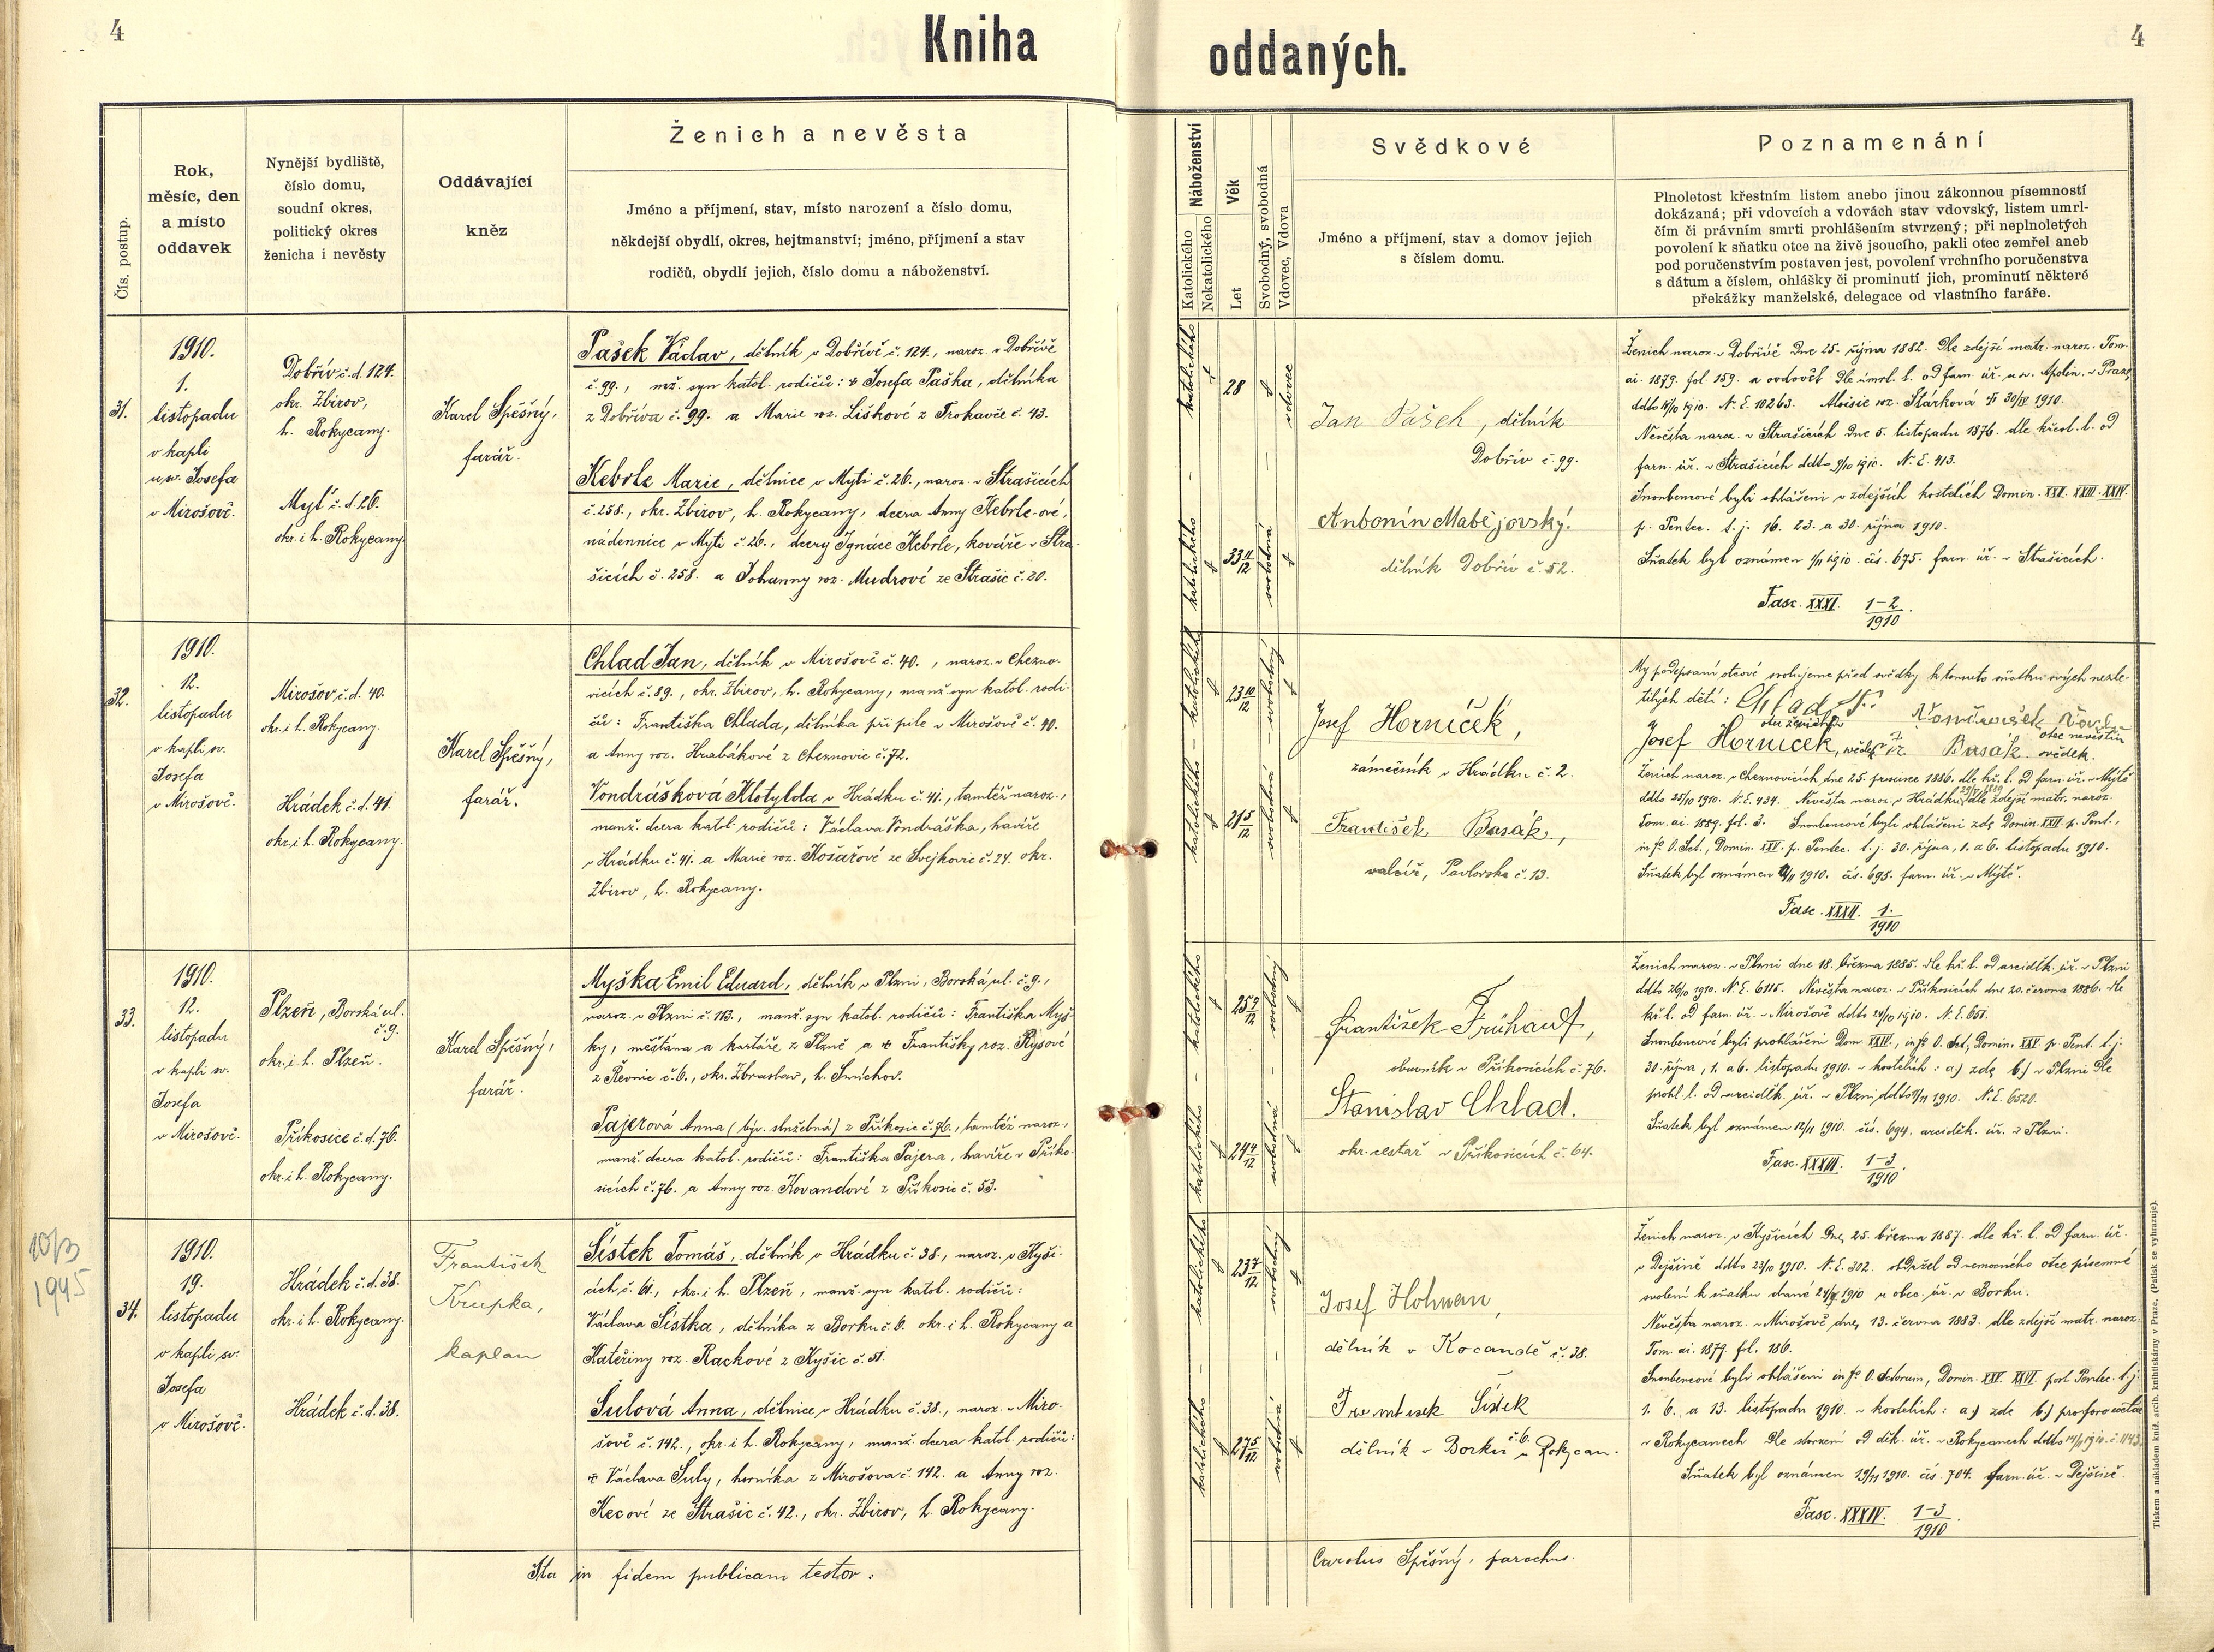 4
Kniha oddaných.
4
Čís. postup.
Rok,
měsíc, den
a místo
oddavek
Nynější bydliště,
číslo domu,
soudní okres,
politický okres
ženicha i nevěsty
Oddávající
kněz
Ženich a nevěsta
Jméno a příjmení, stav, místo narození a číslo domu,
někdejší obydlí, okres, hejtmanství; jméno, příjmení a stav
rodičů, obydlí jejich, číslo domu a náboženství.
Náboženství
Katolického
Nekatolického
Věk
Let
Svobodný, svobodná
Vdovec, Vdova
Svědkové
Jméno a příjmení, stav a domov jejich
s číslem domu.
Poznamenání
Plnoletost křestním listem anebo jinou zákonnou písemností
dokázaná; při vdovcích a vdovách stav vdovský, listem umrl-
čím či právním smrti prohlášením stvrzený; při neplnoletých
povolení k sňatku otce na živě jsoucího, pakli otec zemřel aneb
pod poručenstvím postaven jest, povolení vrchního poručenstva
s dátum a číslem, ohlášky či prominutí jich, prominutí některé
překážky manželské, delegace od vlastního faráře.
31.
1910.
1.
listopadu
v kapli
u sv. Josefa
v Mirošově.
Dobřív č.d. 124.
okr. Zbirov,
h. Rokycany.
Mýť č.d. 26.
okr. i h. Rokycany.
Karel Spěšný,
farář.
Pašek Václav, dělník v Dobřívě č. 124., naroz. v Dobřívě
č. 99., mž. syn katol. rodičů: † Josefa Paška, dělníka
z Dobříva č. 99. a Marie roz. Liškové z Trokavče č. 43.
Kebrle Marie, dělnice v Mýti č. 26., naroz. v Strašicích
č. 258., okr. Zbirov, h. Rokycany, dcera Anny Kebrle-ové,
nádennice v Mýti č. 26., dcery Ignáce Kebrle, kováře v Stra-
šicích č. 258. a Johanny roz. Mudrové ze Strašic č. 20.
katolického
28
vdovec
katolického
33 11/12
svobodná
Jan Pašek, dělník
Dobřív č. 99.
Antonín Matějovský.
dělník Dobřív č. 52.
Ženich naroz. v Dobřívě dne 25. října 1882. dle zdejší matr. naroz. Tom.
ai. 1879. fol. 159. a ovdověl dle úmrt. l. od farn. úř. u sv. Apolin. v Praze
N. E. 10263. Aloisie roz. Stárková
Nevěsta naroz. v Strašicích dne 5. listopadu 1876. dle křest. l. od
farn. úř. v Strašicích ddto 9/10 1910. N. E. 413.
Snoubencové byli ohlášeni v zdejších kostelích Domin. XXII. XXIII. XXIV.
p. Pentec. t. j. 16. 23. a 30. října 1910.
Sňatek byl oznámen 1/11 1910. čís. 675. farn. úř. v Strašicích.
Fasc. XXXI. 1-2/1910.
32.
1910.
12.
listopadu
v kapli sv.
Josefa
v Mirošově.
Mirošov č.d. 40.
okr. i h. Rokycany.
Hrádek č.d. 41.
okr. i h. Rokycany.
Karel Spěšný,
farář.
Chlad Jan, dělník v Mirošově č. 40., naroz. v Chezno-
vicích č. 89., okr. Zbirov, h. Rokycany, manž. syn katol. rodi-
čů: Františka Chlada, dělníka při pile v Mirošově č. 40.
a Anny roz. Hrabákové z Cheznovic č. 72.
Vondrášková Klotylda v Hrádku č. 41., tamtéž naroz.,
manž. dcera katol. rodičů: Václava Vondráška, havíře
v Hrádku č. 41. a Marie roz. Košařové ze Svejkovic č. 24. okr.
Zbirov, h. Rokycany.
katolického
23 10/12
svobodný
katolického
21 5/12
svobodná
Josef Horníček,
zámečník v Hrádku č. 2.
František Basák,
valcíř, Pavlovsko č. 13.
My podepsaní otcové svolujeme před svědky k tomuto sňatku svých nezle-
tilých dětí: Chlad Fr.
otec ženicha
otec nevěstin
Josef Horníček, svědek Fr. Basák. svědek.
Ženich naroz. v Cheznovicích dne 25. prosince 1886. dle kř. l. od farn. úř. v Mýtě
ddto 25/10 1910. N. E. 434. Nevěsta naroz. v Hrádku dle zdejší matr. naroz.
Tom. ai. 1889. fol. 3. Snoubencové byli ohlášeni zde Domin. XXIV. p. Pent.,
in fo O. Sct., Domin. XXV. p. Pentec. t. j. 30. října, 1. a 6. listopadu 1910.
Sňatek byl oznámen 1910. čís. 695. farn. úř. v Mýtě.
Fasc. XXXII. 1./1910
33.
1910.
12.
listopadu
v kapli sv.
Josefa
v Mirošově.
Plzeň, Borská ul.
č. 9.
okr. i h. Plzeň.
Příkosice č.d. 76.
okr. i h. Rokycany.
Karel Spěšný,
farář.
Myška Emil Eduard, dělník v Plzni, Borská ul. č. 9.,
naroz. v Plzni č. 113., manž. syn katol. rodičů: Františka Myš-
ky, měšťana a kartáře z Plzně a † Františky roz. Rysové
z Řevnic č. 6., okr. Zbraslav, h. Smíchov.
Pajerová Anna (býv. služebná) z Příkosic č. 76., tamtéž naroz.,
manž. dcera katol. rodičů: Františka Pajera, havíře v Příko-
sicích č. 76. a Anny roz. Kovandové z Příkosic č. 53.
katolického
25 9/12
svobodný
katolického
24 4/12
svobodná
František Frühauf,
obuvník v Příkosicích č. 76.
Stanislav Chlad.
okr. cestář v Příkosicích č. 64.
Ženich naroz. v Plzni dne 18. března 1885. dle kř. l. od arciděk. úř. v Plzni
ddto 26/10 1910. N. E. 6115. Nevěsta naroz. v Příkosicích dne 20. června 1886. dle
kř. l. od farn. úř. v Mirošově ddto 24/10 1910. N. E. 651.
Snoubencové byli prohlášeni Dom. XXIV., in fo O. Sct., Domin. XXV. p. Pent. t. j.
30. října, 1. a 6. listopadu 1910. v kostelích: a.) zde b.) v Plzni dle
prohl. l. od arciděk. úř. v Plzni ddto 1910. N. E. 6520.
Sňatek byl oznámen 12/11 1910. čís. 694. arciděk. úř. v Plzni.
Fasc. XXXIII. 1-3/1910.
10/3
1945
34.
1910.
19.
listopadu
v kapli sv.
Josefa
v Mirošově.
Hrádek č.d. 38.
okr. i h. Rokycany.
Hrádek č.d. 38.
František
Krupka,
kaplan
Šístek Tomáš, dělník v Hrádku č. 38., naroz. v Kyši-
cích č. 61., okr. i h. Plzeň, manž. syn katol. rodičů:
Václava Šístka, dělníka z Borku č. 6. okr. i h. Rokycany a
Kateřiny roz. Rackové z Kyšic č. 51.
Šulová Anna, dělnice v Hrádku č. 38., naroz. v Miro-
šově č. 142., okr. i h. Rokycany, manž. dcera katol. rodičů:
† Václava Šuly, horníka z Mirošova č. 142. a Anny roz.
Kecové ze Strašic č. 42., okr. Zbirov, h. Rokycany.
katolického
23 7/12
svobodný
katolického
27 5/12
svobodná
Josef Hohman,
dělník v Kocandě č. 38.
Frantisek Šístek
dělník v Borku č. 6. u Rokycan.
Ženich naroz. v Kyšicích dne 25. března 1887. dle kř. l. od farn. úř.
v Dejšině ddto 23/10 1910. N. E. 302. obdržel od nemocného otce písemné
svolení k sňatku dané 1910 u obec. úř. v Borku.
Nevěsta naroz. v Mirošově dne 13. června 1883. dle zdejší matr. naroz.
Tom. ai. 1879. fol. 186.
Snoubencové byli ohlášeni in fo O. Sctorum, Domin. XXV. XXVI. post Pentec. t. j.
1. 6. a 13. listopadu 1910. v kostelích: a.) zde b.)
v Rokycanech dle stvrzení od děk. úř. v Rokycanech ddto 14/11 1910. č. 1143.
Sňatek byl oznámen 19/11 1910. čís. 704. farn. úř. v Dejšině.
Fasc. XXXIV. 1-3/1910.
Ita in fidem publicam testor: Carolus Spěšný, parochus.
Tiskem a nákladem kníž. arcib. knihtiskárny v Praze. (Patisk se vyhrazuje).